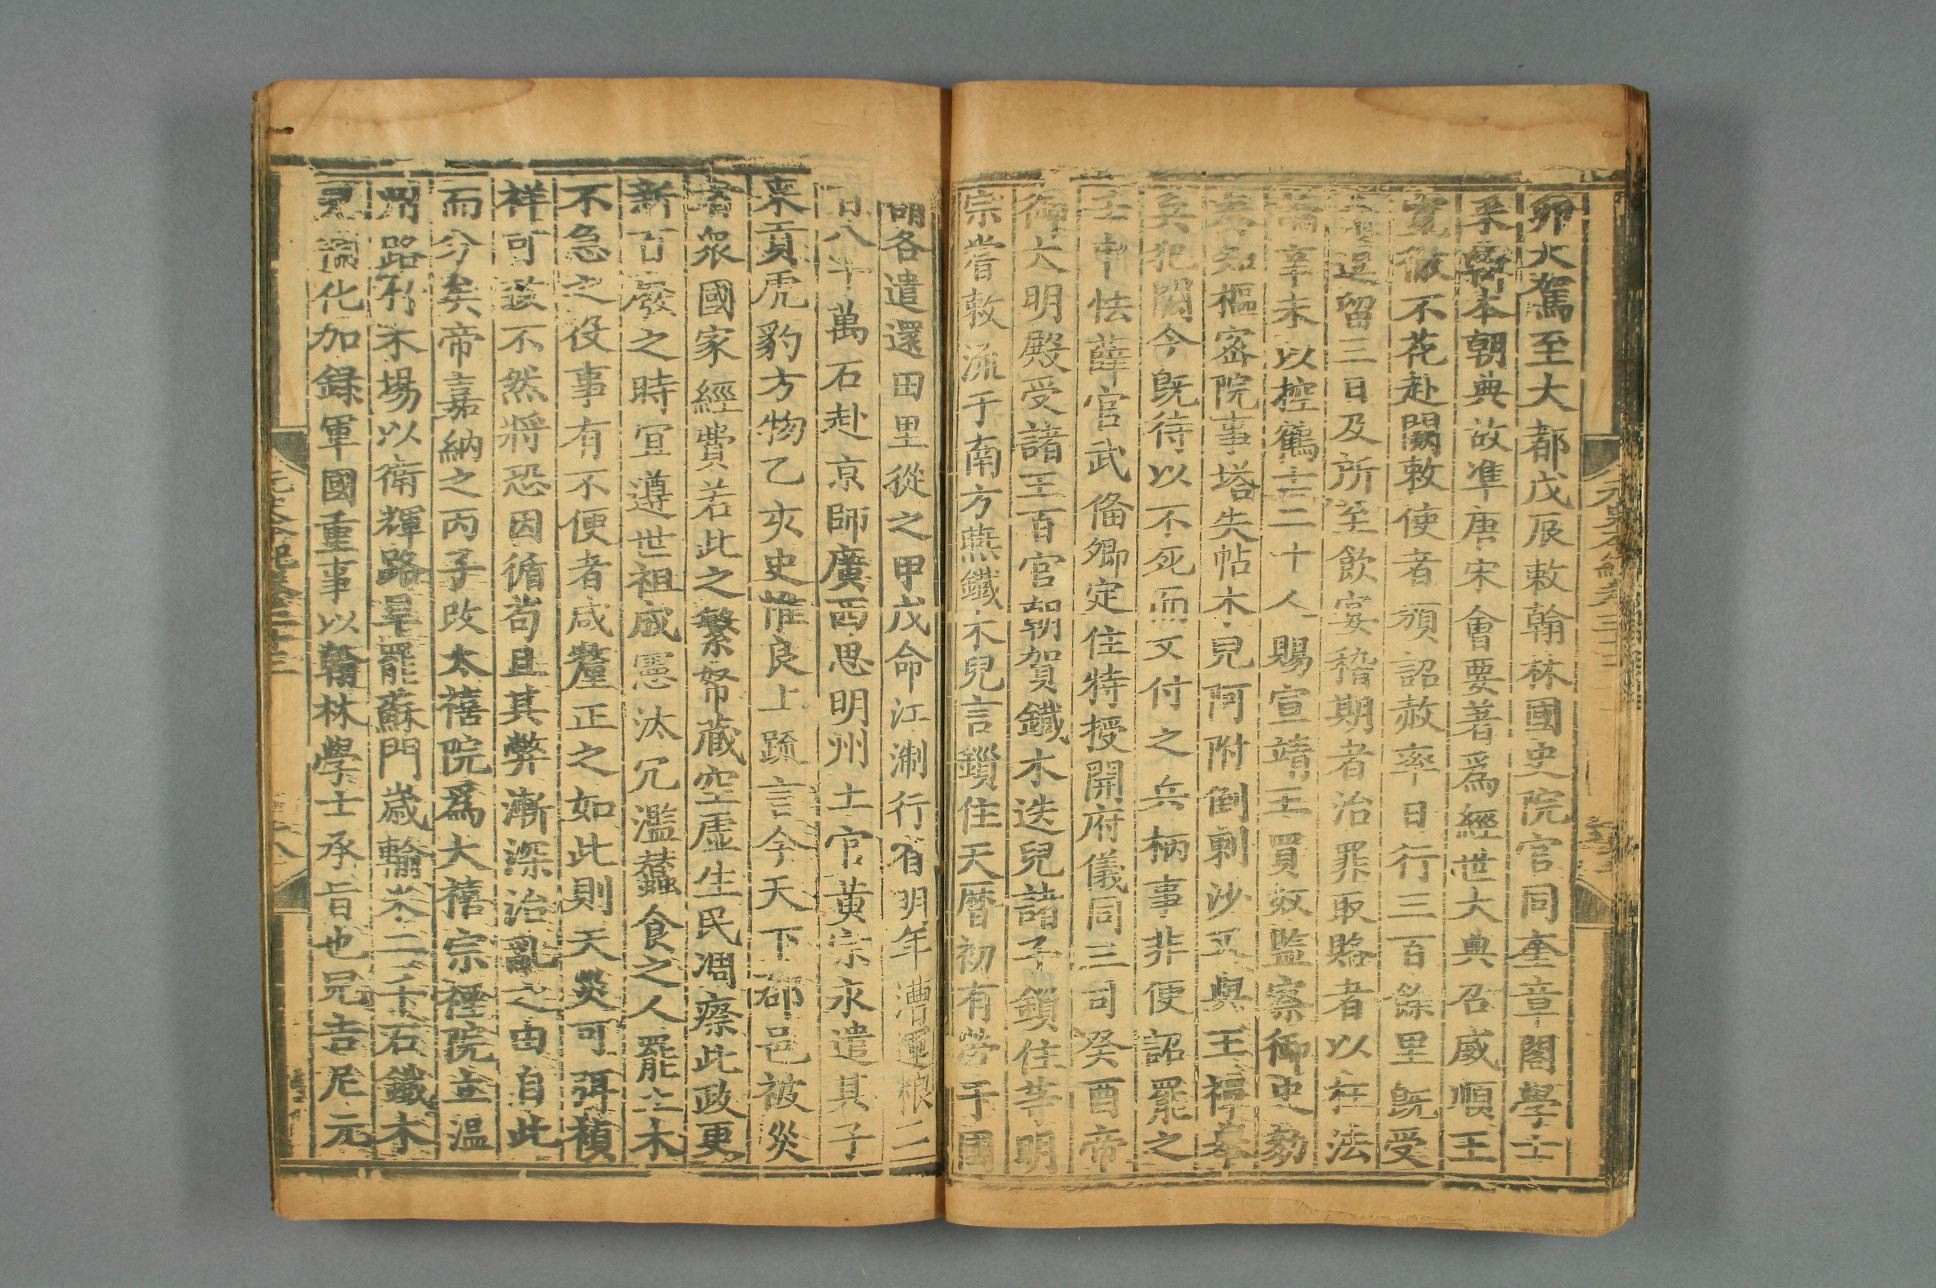 卯大駕至大都戊辰敕翰林國史院官同奎章閣學士
采輯本朝典故準唐宋會要著為經世大典召威順王
寬徹不花赴闕敕使者頒詔赦率日行三百餘里既受
命逗留三日及所至飲宴稽期者治罪取賂者以枉法
論辛未以控鶴士二十人賜宣靖王買奴監察御史劾
奏知樞密院事塔失帖木兒阿附倒剌沙又與王禪舉
兵犯闕今既待以不死而又付之兵柄事非便詔罷之
壬申怯薛官武備卿定住特授開府儀同三司癸酉帝
御大明殿受諸王百官朝賀鐵木迭兒諸子鎖住等明
宗嘗敕流于南方燕鐵木兒言鎖住天曆初有勞于國
請各遣還田里從之甲戌命江淛行省明年漕運粮二
百八十萬石赴京師廣西思明州土官黃宗永遣其子
來貢虎豹方物乙亥史惟良上疏言今天下郡邑被災
者衆國家經費若此之繁帑藏空虛生民凋瘵此政更
新百廢之時宜遵世祖成憲汰冗濫蠶食之人罷土木
不急之役事有不便者咸釐正之如此則天災可弭禎
祥可致不然將恐因循苟且其弊漸深治亂之由自此
而分矣帝嘉納之丙子改太禧院為太禧宗禋院立温
州路竹木場以衛輝路旱罷蘇門歲輸米二千石鐵木
兒補化加錄軍國重事以翰林學士承旨也兒吉尼元
元史本紀卷三十三